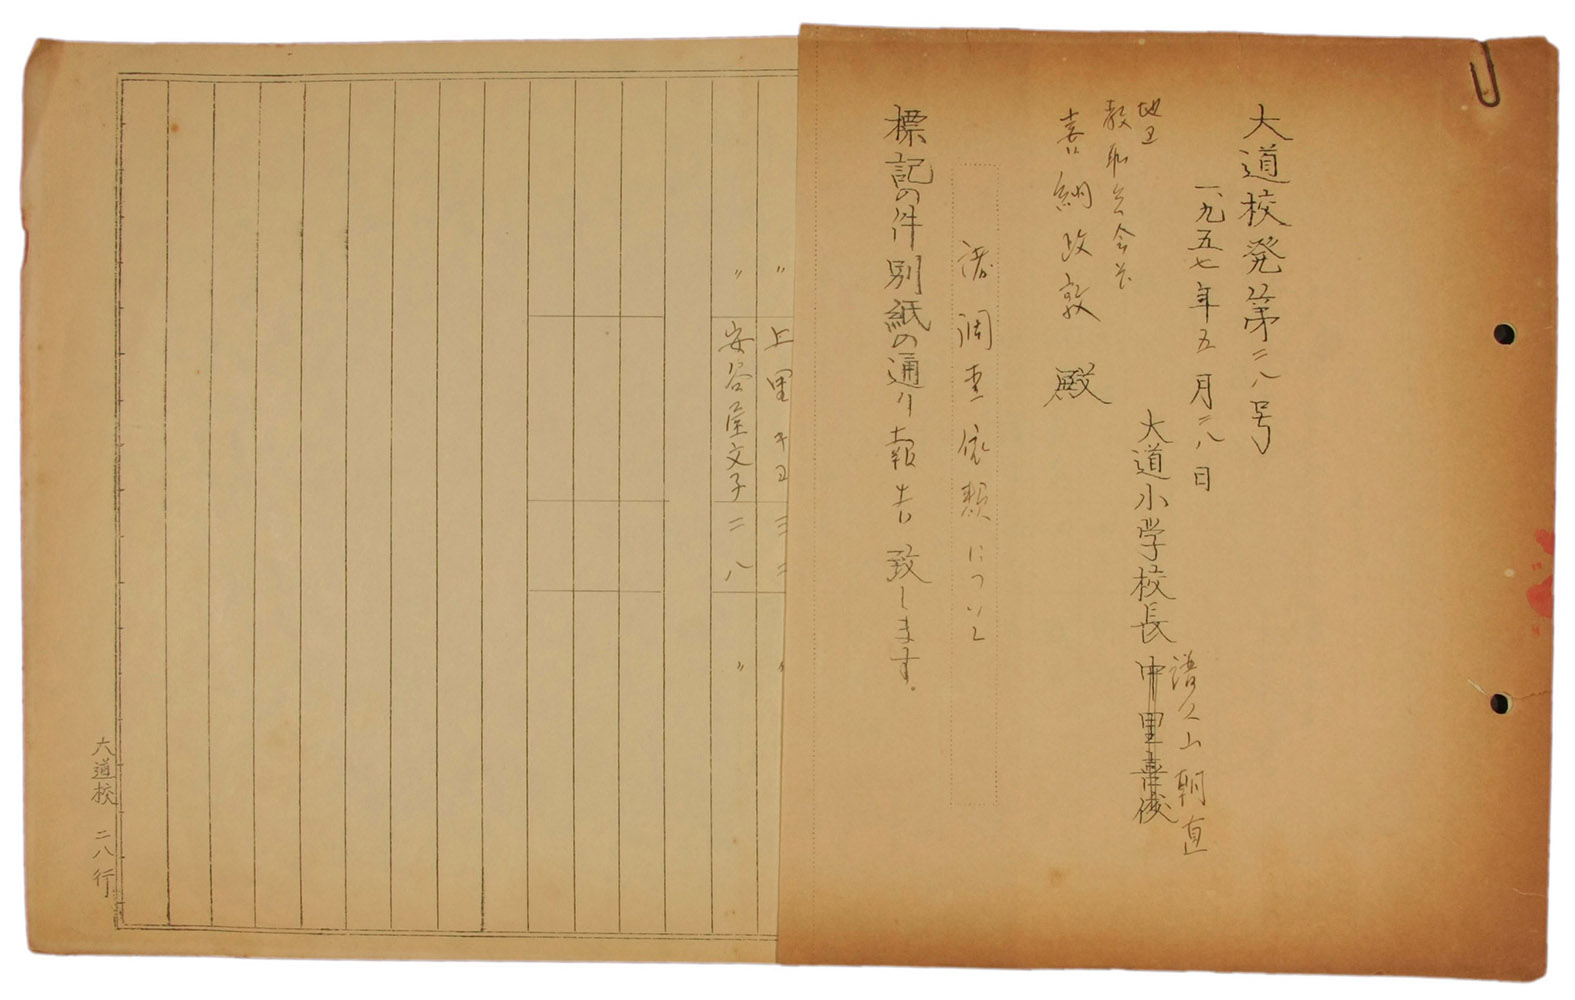 大道校発第二八号
一九五七年五月二八日
大道小学校長 中里喜俊
譜久山朝直
地区
教職員会会長
喜納政敦 殿
諸調査依頼について
標記の件別紙の通り報告致します。
〃 上里 三二 〃
〃 安谷屋文子 二八 〃
大道校 二八行